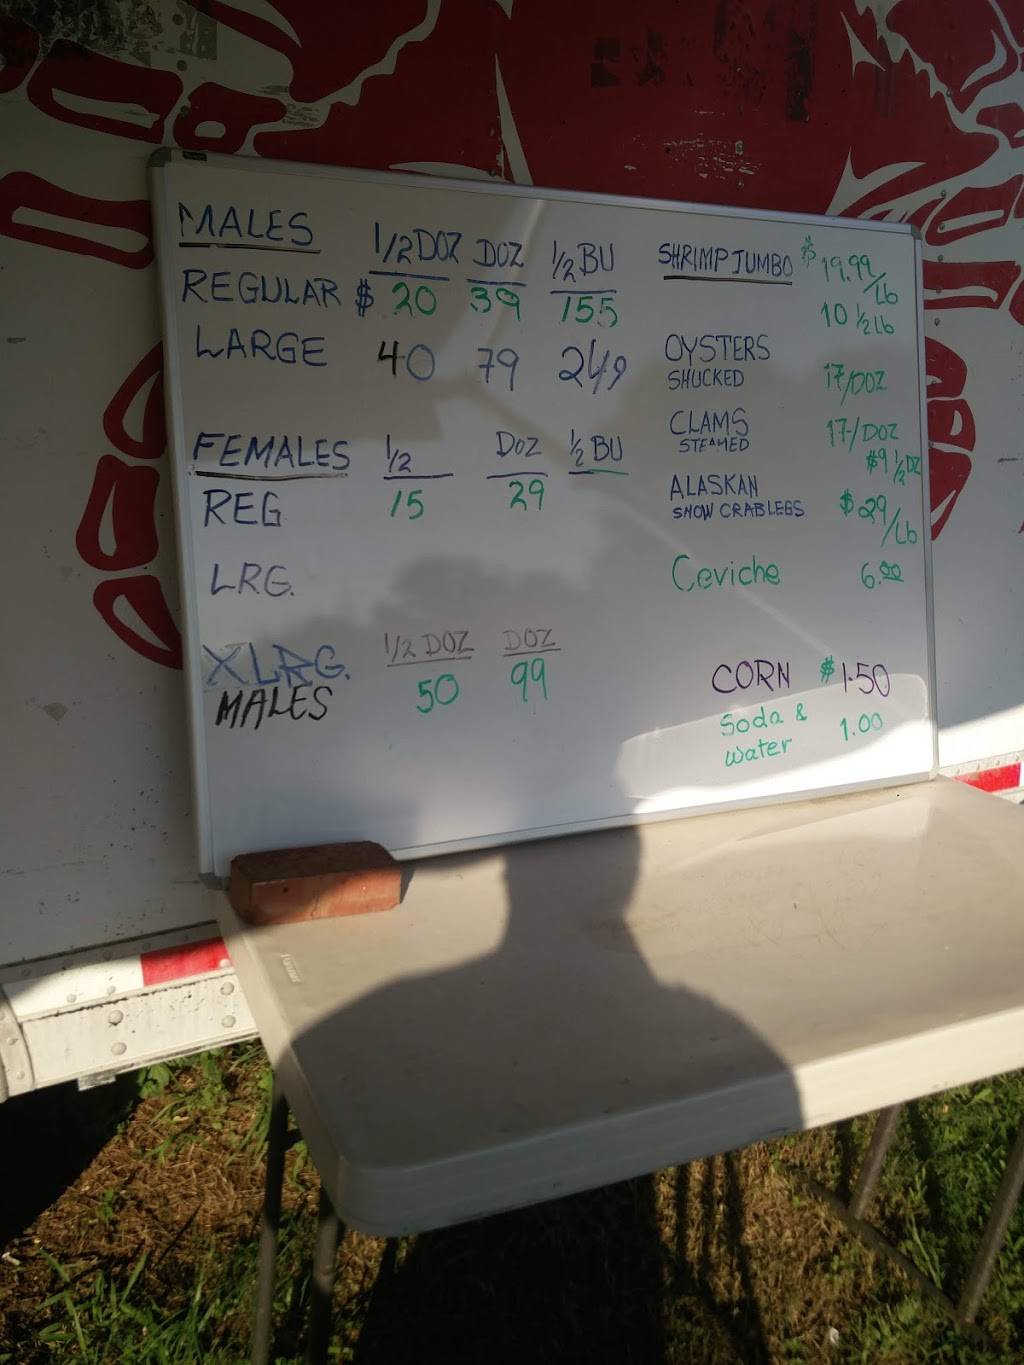 MALES 1/2 DOZ DOZ 1/2 BU
REGULAR $ 20 39 155
LARGE 40 79 249
FEMALES 1/2 DOZ 1/2 BU
REG 15 29
LRG.
XLRG. 1/2 DOZ DOZ
MALES 50 99
SHRIMP JUMBO $19.99/Lb
10 1/2 Lb
OYSTERS
SHUCKED 17/DOZ
CLAMS 17/DOZ
STEAMED $9 1/2 DZ
ALASKAN
SNOW CRAB LEGS $29/Lb
Ceviche 6.00
CORN $1.50
Soda &
water 1.00